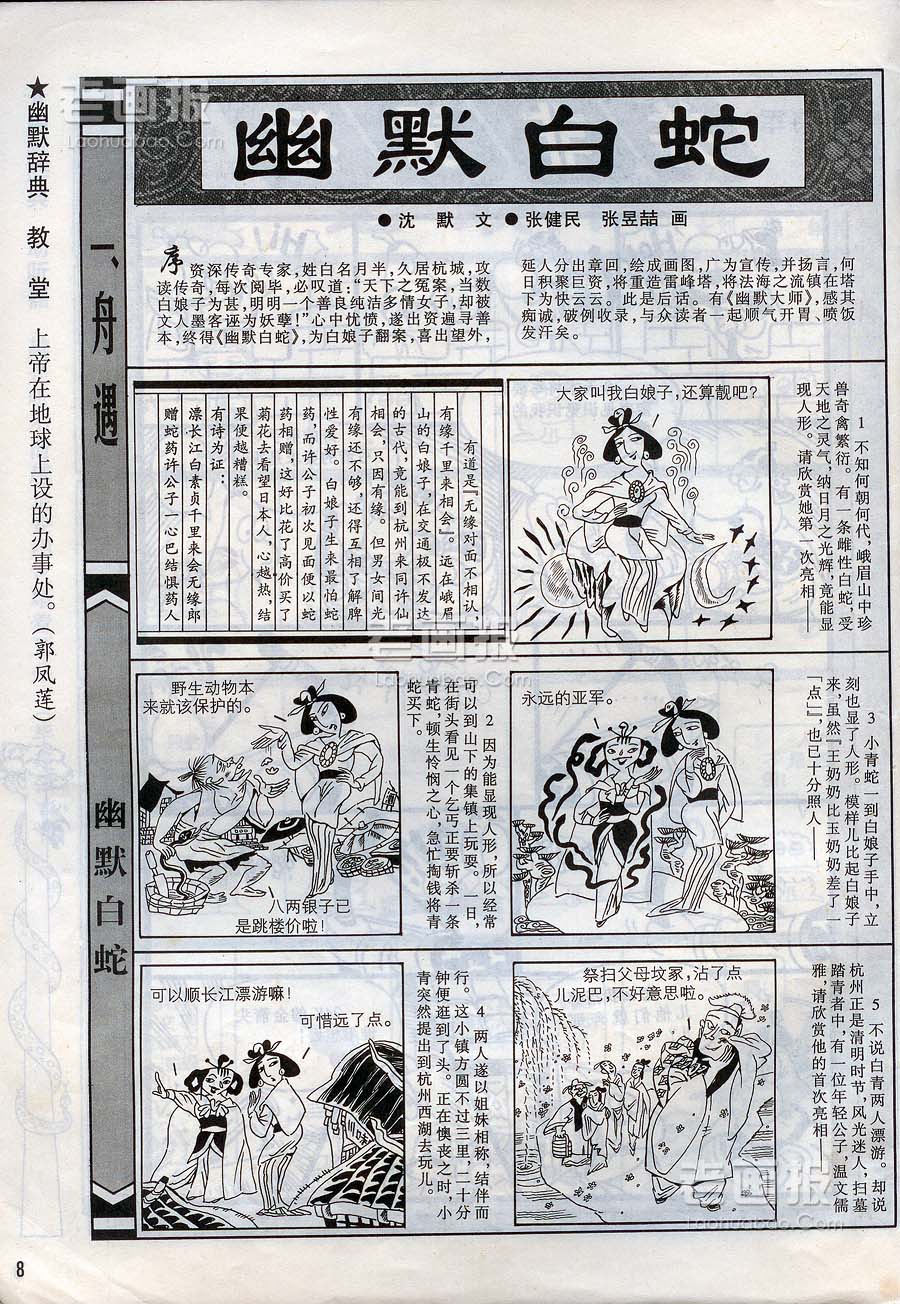 ★幽默辞典 教堂 上帝在地球上设的办事处。（郭凤莲）
一、舟遇
幽默白蛇
幽默白蛇
●沈默 文●张健民 张昱喆 画
序
资深传奇专家，姓白名月半，久居杭城，攻
读传奇，每次阅毕，必叹道：“天下之冤案，当数
白娘子为甚，明明一个善良纯洁多情女子，却被
文人墨客诬为妖孽！”心中忧愤，遂出资遍寻善
本，终得《幽默白蛇》，为白娘子翻案，喜出望外，
延人分出章回，绘成画图，广为宣传，并扬言，何
日积聚巨资，将重造雷峰塔，将法海之流镇在塔
下为快云云。此是后话。有《幽默大师》，感其
痴诚，破例收录，与众读者一起顺气开胃、喷饭
发汗矣。
有道是『无缘对面不相认，
有缘千里来相会』。远在峨眉
山的白娘子，在交通极不发达
的古代，竟能到杭州来同许仙
相会，只因有缘。但男女间光
有缘还不够，还得互相了解脾
性爱好。白娘子生来最怕蛇
药，而许公子初次见面便以蛇
药相赠，这好比花了高价买了
菊花去看望日本人，心越热，结
果便越糟糕。
有诗为证：
漂长江白素贞千里来会无缘郎
赠蛇药许公子一心巴结惧药人
大家叫我白娘子，还算靓吧？
1 不知何朝何代，峨眉山中珍
兽奇禽繁衍。有一条雌性白蛇，受
天地之灵气，纳日月之光辉，竟能显
现人形。请欣赏她第一次亮相——
野生动物本
来就该保护的。
八两银子已
是跳楼价啦！
2 因为能显现人形，所以经常
可以到山下的集镇上玩耍。一日，
在街头看见一个乞丐正要斩杀一条
青蛇，顿生怜悯之心，急忙掏钱将青
蛇买下。
永远的亚军。
3 小青蛇一到白娘子手中，立
刻也显了人形。模样儿比起白娘子
来，虽然『王奶奶比玉奶奶差了一
「点」』，也已十分照人——
可以顺长江漂游嘛！
可惜远了点。
4 两人遂以姐妹相称，结伴而
行。这小镇方圆不过三里，二十分
钟便逛到了头。正在懊丧之时，小
青突然提出到杭州西湖去玩儿。
祭扫父母坟冢，沾了点
儿泥巴，不好意思啦。
5 不说白青两人漂游。却说
杭州正是清明时节，风光迷人，扫墓
踏青者中，有一位年轻公子，温文儒
雅，请欣赏他的首次亮相——
8
老画报
Laohuabao.Com
老画报
Laohuabao.Com
老画报
Laohuabao.Com